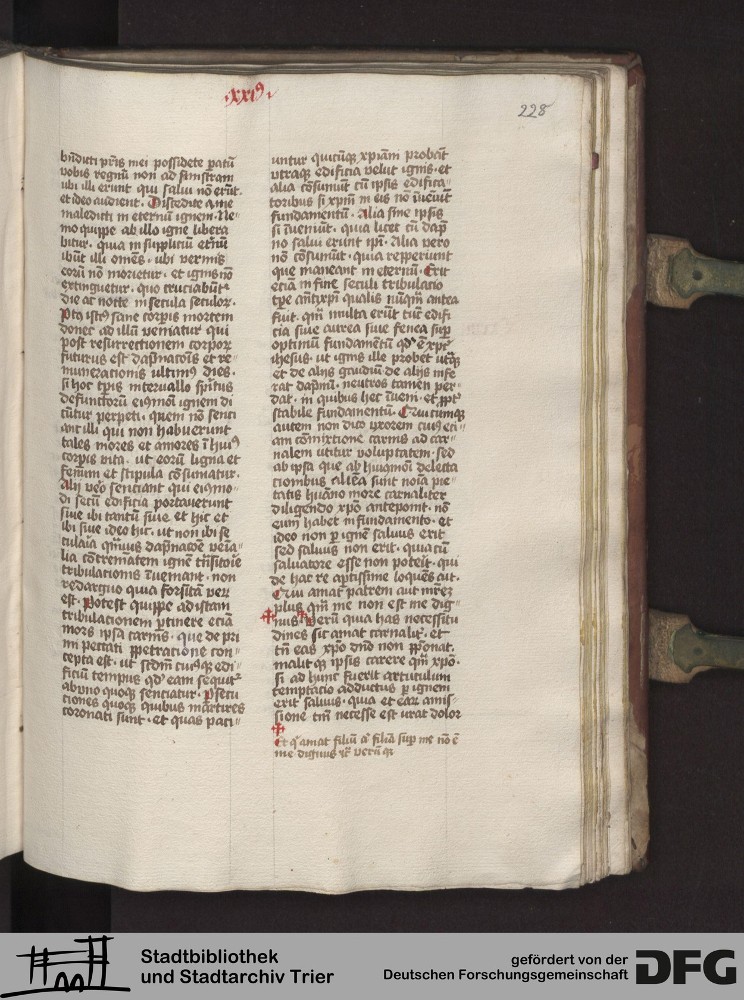 ·xxi⁹·
228
bn̄dicti pr̄is mei possidete patū
vobis regnū non ad sinistram
ubi illi erunt qui salui nō erūt.
et ideo audient. Discedite a me
maledicti in eternū ignem. Ne-
mo quippe ab illo igne libera
bitur. quia in suppliciū et̄nū
ibūt illi om̄es. ubi vermis
eorū nō morietur. et ignis nō
extinguetur. quo cruciabūt᷑
die ac nocte in secula seculoꝝ.
Post istiꝰ sane corp̄is mortem
donec ad illū veniatur qui
post resurrectionem corpoꝝ
futurus est dāpnacōis et re-
muneracionis ultimꝰ dies.
si hoc tp̄is interuallo sp̄itus
defunctorū eiꝰmōi ignem di
cūtur perpeti. quem nō senci
ant illi qui non habuerunt
tales mores et amores ī huiꝰ
corp̄is vita. ut eorū ligna et
fenum et stipula cōsumatur.
Alij veo senciant qui eiꝰmo-
di secū edificia portauerunt
siue ibi tantū siue et hic et
ibi siue ideo hic. ut non ibi se
cularia quāuis dāpnacōe venia-
lia cōcremātem ignē trāsitorie
tribulacionis īueniant. non
redarguo quia forsitā veꝝ
est. Potest quippe ad istam
tribulacionem ꝑtinere eciā
mors ipsa carnis. que de pri
mi peccati ꝑpetracione con-
cepta est. ut scd̄m cuiꝰꝗ edi-
ficiū tempus qd̓ eam sequit᷑
ab vno quoꝗ senciatur. Psecu
ciones quoꝗ quibus martires
coronati sunt. et quas paci-
untur quicūꝗ xp̄iāni probāt
utraꝗ edificia velut ignis. et
alia cōsumūt cū ipsis edifica-
toribus si xpm̄ in eis nō īueniūt
fundamentū. Alia sine ipsis
si īueniūt. quia licet cū dāpno
salui erunt ip̄i. Alia vero
nō cōsumūt. quia reperiunt
que maneant in eternū. Erit
eciā in fine seculi tribulacio
tp̄e antixp̄i qualis nūqm̄ antea
fuit. qm̄ multa erūt tūc edifi
cia siue aurea siue fenea suꝑ
optimū fundamētū qd̓ ē xpc̄
ihesus. ut ignis ille probet utꝗ
et de alijs gaudiū de alijs infe
rat dāpnū. neutros tamen per-
dat. in quibus hec īuen̄. et ppt̓
stabile fundamentū. Quicumꝗ
autem non dico uxorem cuiꝰ eci-
am cōmixtione carnis ad car-
nalem utitur voluptatem. sed
ab ipsa que ab huiꝰmōi delecta
cionibus aliēa sunt noīa pie-
tatis hūano more carnaliter
diligendo xpō anteponit. nō
eum habet in fundamento. et
ideo non ꝑ ignē saluus erit
sed saluus non erit. quia cū
saluatore esse non poterit. qui
de hac re aptissime loquēs ait.
Qui amat patrem aut mrēꝫ
plus qm̄ me non est me dig-
nus. Verū quia has necessitu
dines sic amat carnalit᷑. et
tn̄ eas xpō dnō non p̄ponat.
malitꝗ ipsis carere qm̄ xpō.
si ad hunc fuerit articulum
temptacio adductus ꝑ ignem
erit saluus. quia et eaꝝ amis-
sione tm̄ necesse est urat dolor
Et qͥ amat filiū aͭ filiā suꝑ me nō ē
me dignus ⁊c̄ verū qͥ
Stadtbibliothek
und Stadtarchiv Trier
gefördert von der
Deutschen Forschungsgemeinschaft
DFG